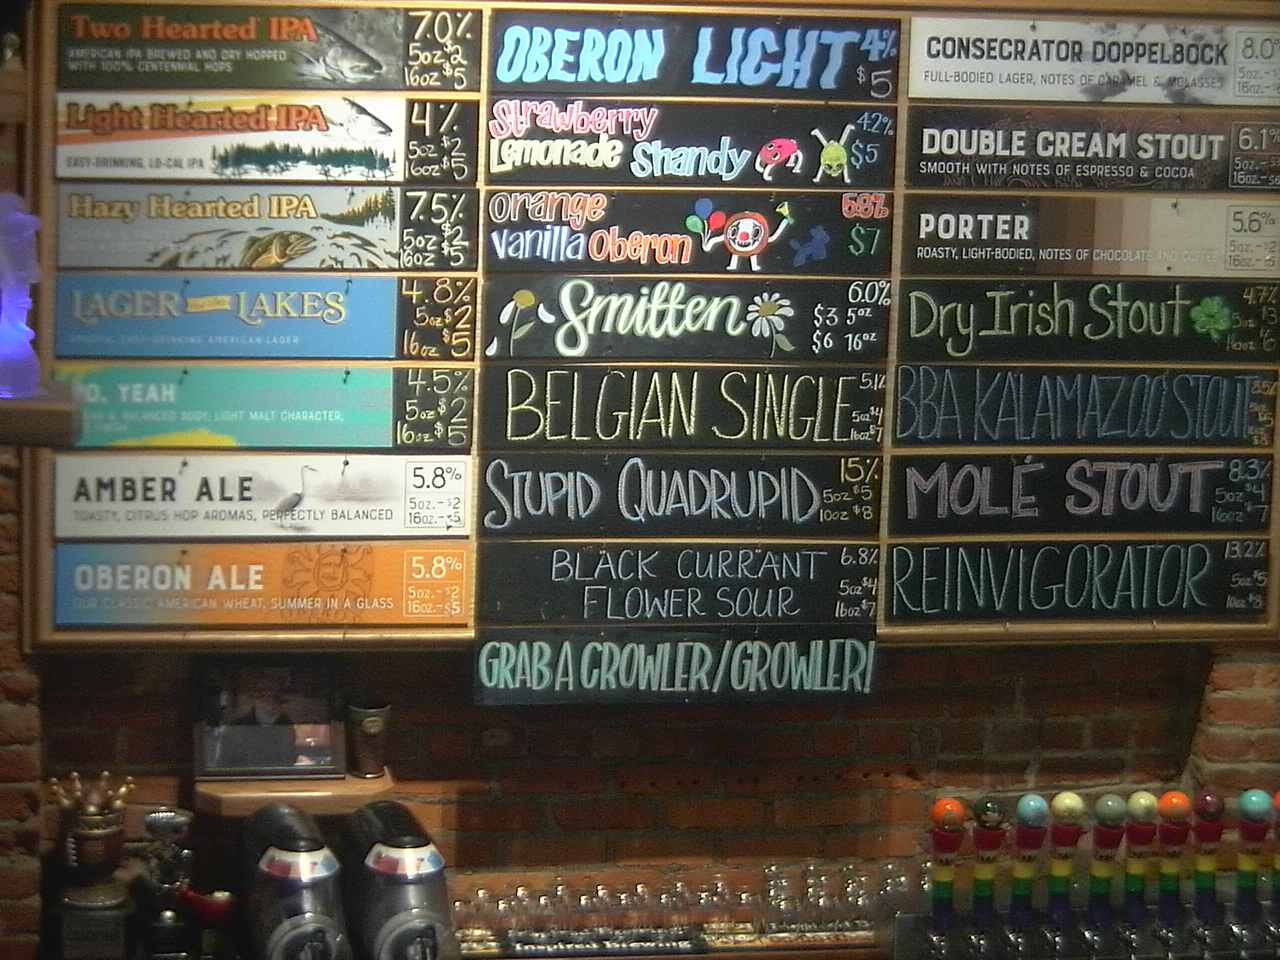 Two Hearted IPA 7.0%
AMERICAN IPA BREWED AND DRY HOPPED 5oz $2
WITH 100% CENTENNIAL HOPS 16oz $5
Light Hearted IPA 4%
EASY-DRINKING, LO-CAL IPA 5oz $2
16oz $5
Hazy Hearted IPA 7.5%
5oz $2
16oz $5
LAGER LAKES 4.8%
5oz $2
SMOOTH, EASY-DRINKING AMERICAN LAGER 16oz $5
YEAH 4.5%
& BALANCED BODY, LIGHT MALT CHARACTER, 5oz $2
16oz $5
AMBER ALE 5.8%
TOASTY, CITRUS HOP AROMAS, PERFECTLY BALANCED 5oz.-$2
16oz.-$5
OBERON ALE 5.8%
OUR CLASSIC AMERICAN WHEAT, SUMMER IN A GLASS 5oz.-$2
16oz.-$5
OBERON LIGHT 4%
$5
Strawberry 4.2%
Lemonade Shandy $5
Orange 5.8%
Vanilla Oberon $7
Smitten 6.0%
$3 5oz
$6 16oz
BELGIAN SINGLE 5.1%
5oz $4
16oz $7
STUPID QUADRUPID 15%
5oz $5
10oz $8
BLACK CURRANT 6.8%
FLOWER SOUR 5oz $4
16oz $7
GRAB A CROWLER/GROWLER!
CONSECRATOR DOPPELBOCK 8.0
FULL-BODIED LAGER, NOTES OF CARAMEL & MOLASSES 5oz.-
16oz.-
DOUBLE CREAM STOUT 6.1
SMOOTH WITH NOTES OF ESPRESSO & COCOA 5oz.-
16oz.-
PORTER 5.6%
ROASTY, LIGHT-BODIED, NOTES OF CHOCOLATE AND COFFEE 5oz.-$2
16oz.-
Dry Irish Stout 4.7%
5oz $3
16oz $6
BBA KALAMAZOO STOUT
MOLÉ STOUT 8.3%
5oz $4
16oz $7
REINVIGORATOR 13.2%
5oz $5
10oz $8
Inspired Brewing